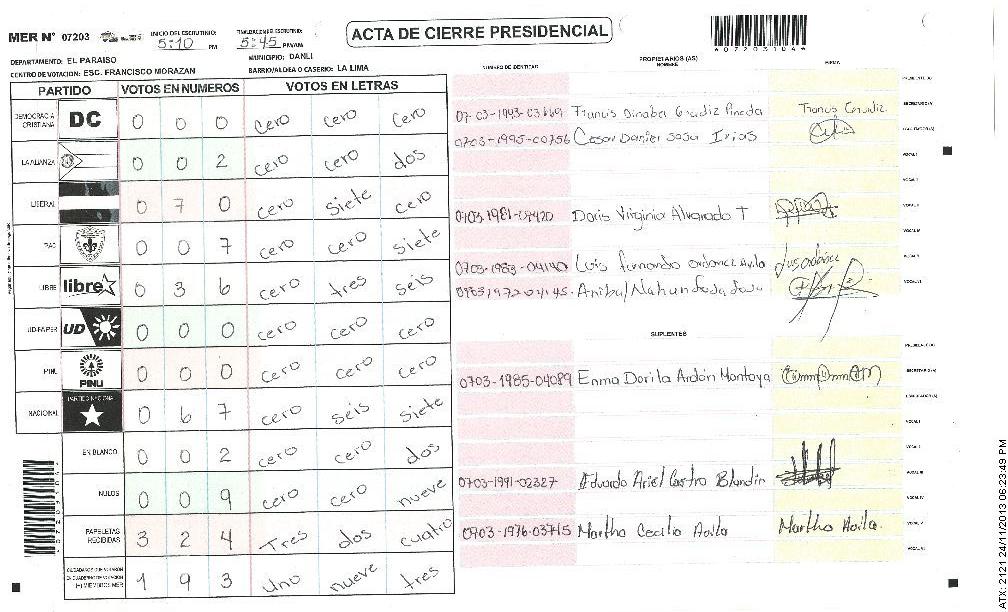 MER N° 07203
INICIO DEL ESCRUTINIO: 5:10 PM
FINALIZACION ESCRUTINIO: 5:45 PM/AM
ACTA DE CIERRE PRESIDENCIAL
DEPARTAMENTO: EL PARAISO
MUNICIPIO: DANLI
CENTRO DE VOTACION: ESC. FRANCISCO MORAZAN
BARRIO/ALDEA O CASERIO: LA LIMA
PARTIDO VOTOS EN NUMEROS VOTOS EN LETRAS
DEMOCRACIA CRISTIANA DC 0 0 0 cero cero cero
LA ALIANZA 0 0 2 cero cero dos
LIBERAL 0 7 0 cero siete cero
PAC 0 0 7 cero cero siete
LIBRE libre 0 3 6 cero tres seis
UD-FAPER UD 0 0 0 cero cero cero
PINU PINU 0 0 0 cero cero cero
NACIONAL PARTIDO NACIONAL 0 6 7 cero seis siete
EN BLANCO 0 0 2 cero cero dos
NULOS 0 0 9 cero cero nueve
PAPELETAS RECIBIDAS 3 2 4 Tres dos cuatro
CIUDADANOS QUE VOTARON EN CUADERNO DE VOTACION (+) MIEMBROS MER 1 9 3 uno nueve tres
NUMERO DE IDENTIDAD PROPIETARIOS (AS) NOMBRE FIRMA
PRESIDENTE (A)
SECRETARIO(A)
07-03-1943-03669 Francis Dinaba Gradiz Pineda
ESCRUTADOR(A)
0703-1995-00756 Cesar Daniel Sosa Irias
VOCAL I
VOCAL II
VOCAL III
0703-1981-04420 Doris Virginia Alvarado T
VOCAL IV
VOCAL V
0703-1983-04140 Luis fernando ordonez Avila
VOCAL VI
Anibal Nahun
SUPLENTES
PRESIDENTE (A)
SECRETARIO (A)
0703-1985-04089 Enma Dorila Ardón Montoya
ESCRUTADOR (A)
VOCAL I
VOCAL II
VOCAL III
0703-1991-02327 Eduardo Ariel Castro Blandin
VOCAL IV
VOCAL V
0703-1976-03745 Martha Cecilia Avila Martha Avila.
VOCAL VI
ATX: 2121 24/11/2013 06:23:49 PM